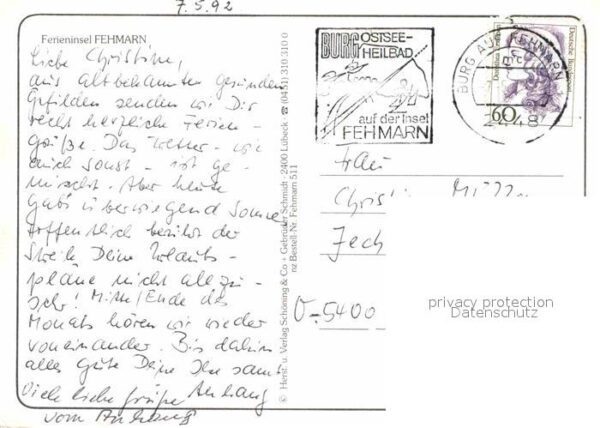 7.5.92
Ferieninsel FEHMARN
Liebe Christine,
aus altbekannten gesunden
Gefilden senden wir Dir
recht herzliche Ferien-
grüße. Das Wetter - wie
auch sonst - ist ge-
mischt. Aber heute
gab's überwiegend Sonne
Hoffentlich berührt der
Streik Deine Urlaubs-
pläne nicht allzu-
sehr! Mitte/Ende des
Monats hören wir wieder
voneinander. Bis dahin
alles Gute Deine samt
Viele liebe Grüße Anhang
vom Anhang
© Herst. u. Verlag Schöning & Co + Gebrüder Schmidt · 2400 Lübeck · ☎ (0451) 310 310 0
nz Bestell-Nr. Fehmarn 511
BURG OSTSEE-
HEILBAD
auf der Insel
FEHMARN
BURG AUF FEHMARN
2448
60
Deutsche Bundespost
Frau
Müller
Zech
D-5400
privacy protection
Datenschutz